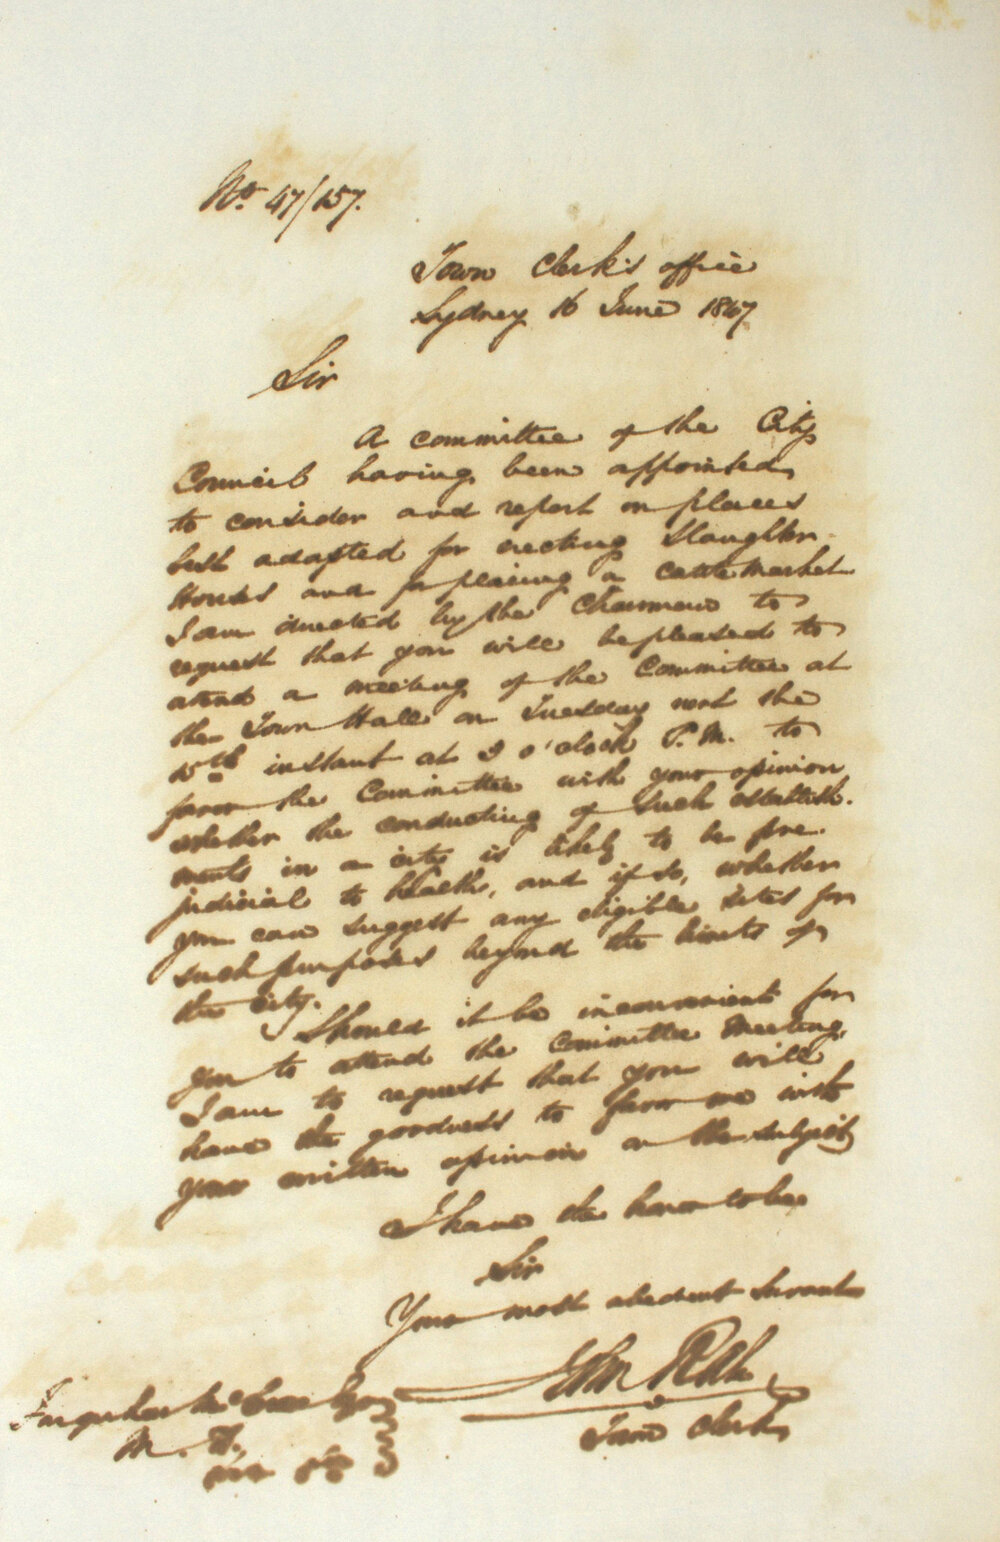 No. 47/157.
Town Clerk's office
Sydney 16 June 1847
Sir
A committee of the City
Council having been appointed
to consider and report on places
best adapted for erecting Slaughter
Houses and for placing a cattle Market
I am directed by the Chairman to
request that you will be pleased to
attend a meeting of the Committee at
the Town Hall on Tuesday next the
15th instant at 3 o'clock P.M. to
favor the Committee with your opinion
whether the conducting of such establish-
ments in a city is likely to be pre-
judicial to health, and if so, whether
you can suggest any eligible sites for
such purposes beyond the limits of
the city.
Should it be inconvenient for
you to attend the Committee Meeting,
I am to request that you will
have the goodness to favor me with
your written opinion on the subject
I have the honor to be
Sir
Your most obedient Servant
John Rae
Town Clerk
Farquhar McCrae Esqr
M. D.